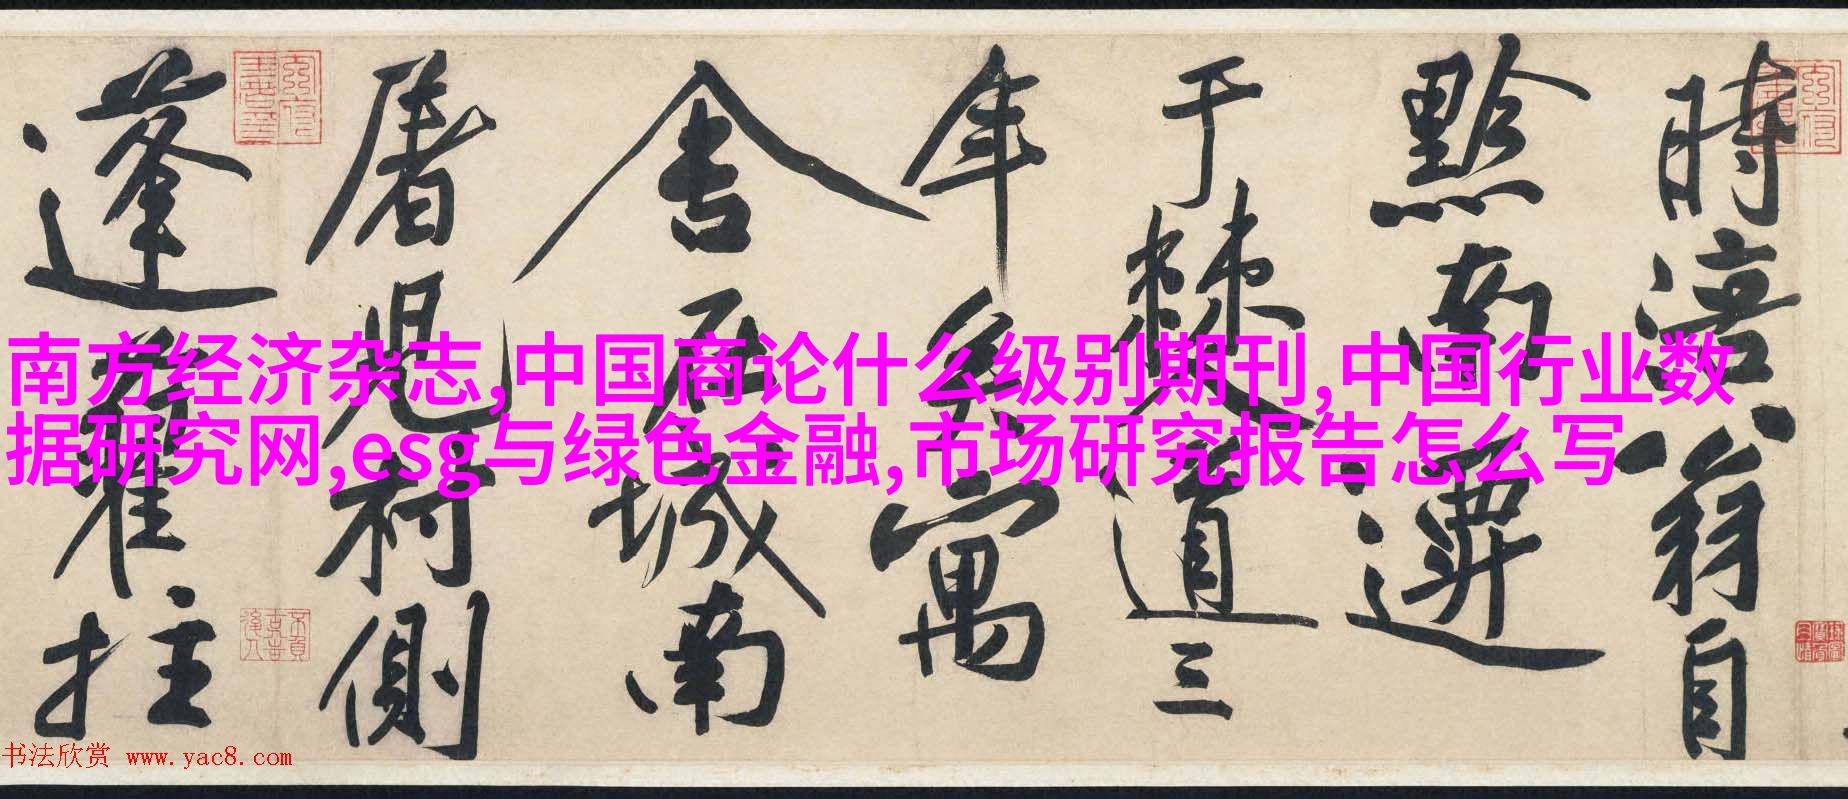 時涪翁自
黔南遷
于僰道三
年矣寓
舍在城南
屠兒村側
蓬藋拄
南方经济杂志,中国商论什么级别期刊,中国行业数
据研究网,esg与绿色金融,市场研究报告怎么写
书法欣赏 www.yac8.com